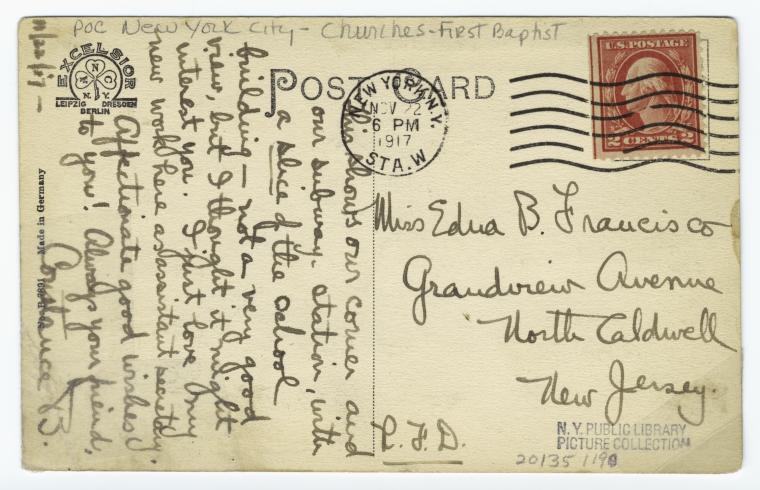 POC New York City - Churches - First Baptist
EXCELSIOR
N
N C
N.Y.
LEIPZIG DRESDEN
BERLIN
POST CARD
NEW YORK, N.Y.
NOV 22
6 PM
1917
STA. W
U.S. POSTAGE
2 CENTS 2
11/22/17 —
This shows our corner and
our subway station, with
a slice of the school
building — not a very good
view, but I thought it might
interest you. I just love my
new work here as assistant secretary.
Affectionate good wishes
to you! Always your friend,
Constance B.
Made in Germany
Miss Edna B. Francisco
Grandview Avenue
North Caldwell
New Jersey.
R.F.D.
N.Y. PUBLIC LIBRARY
PICTURE COLLECTION
20135 1190